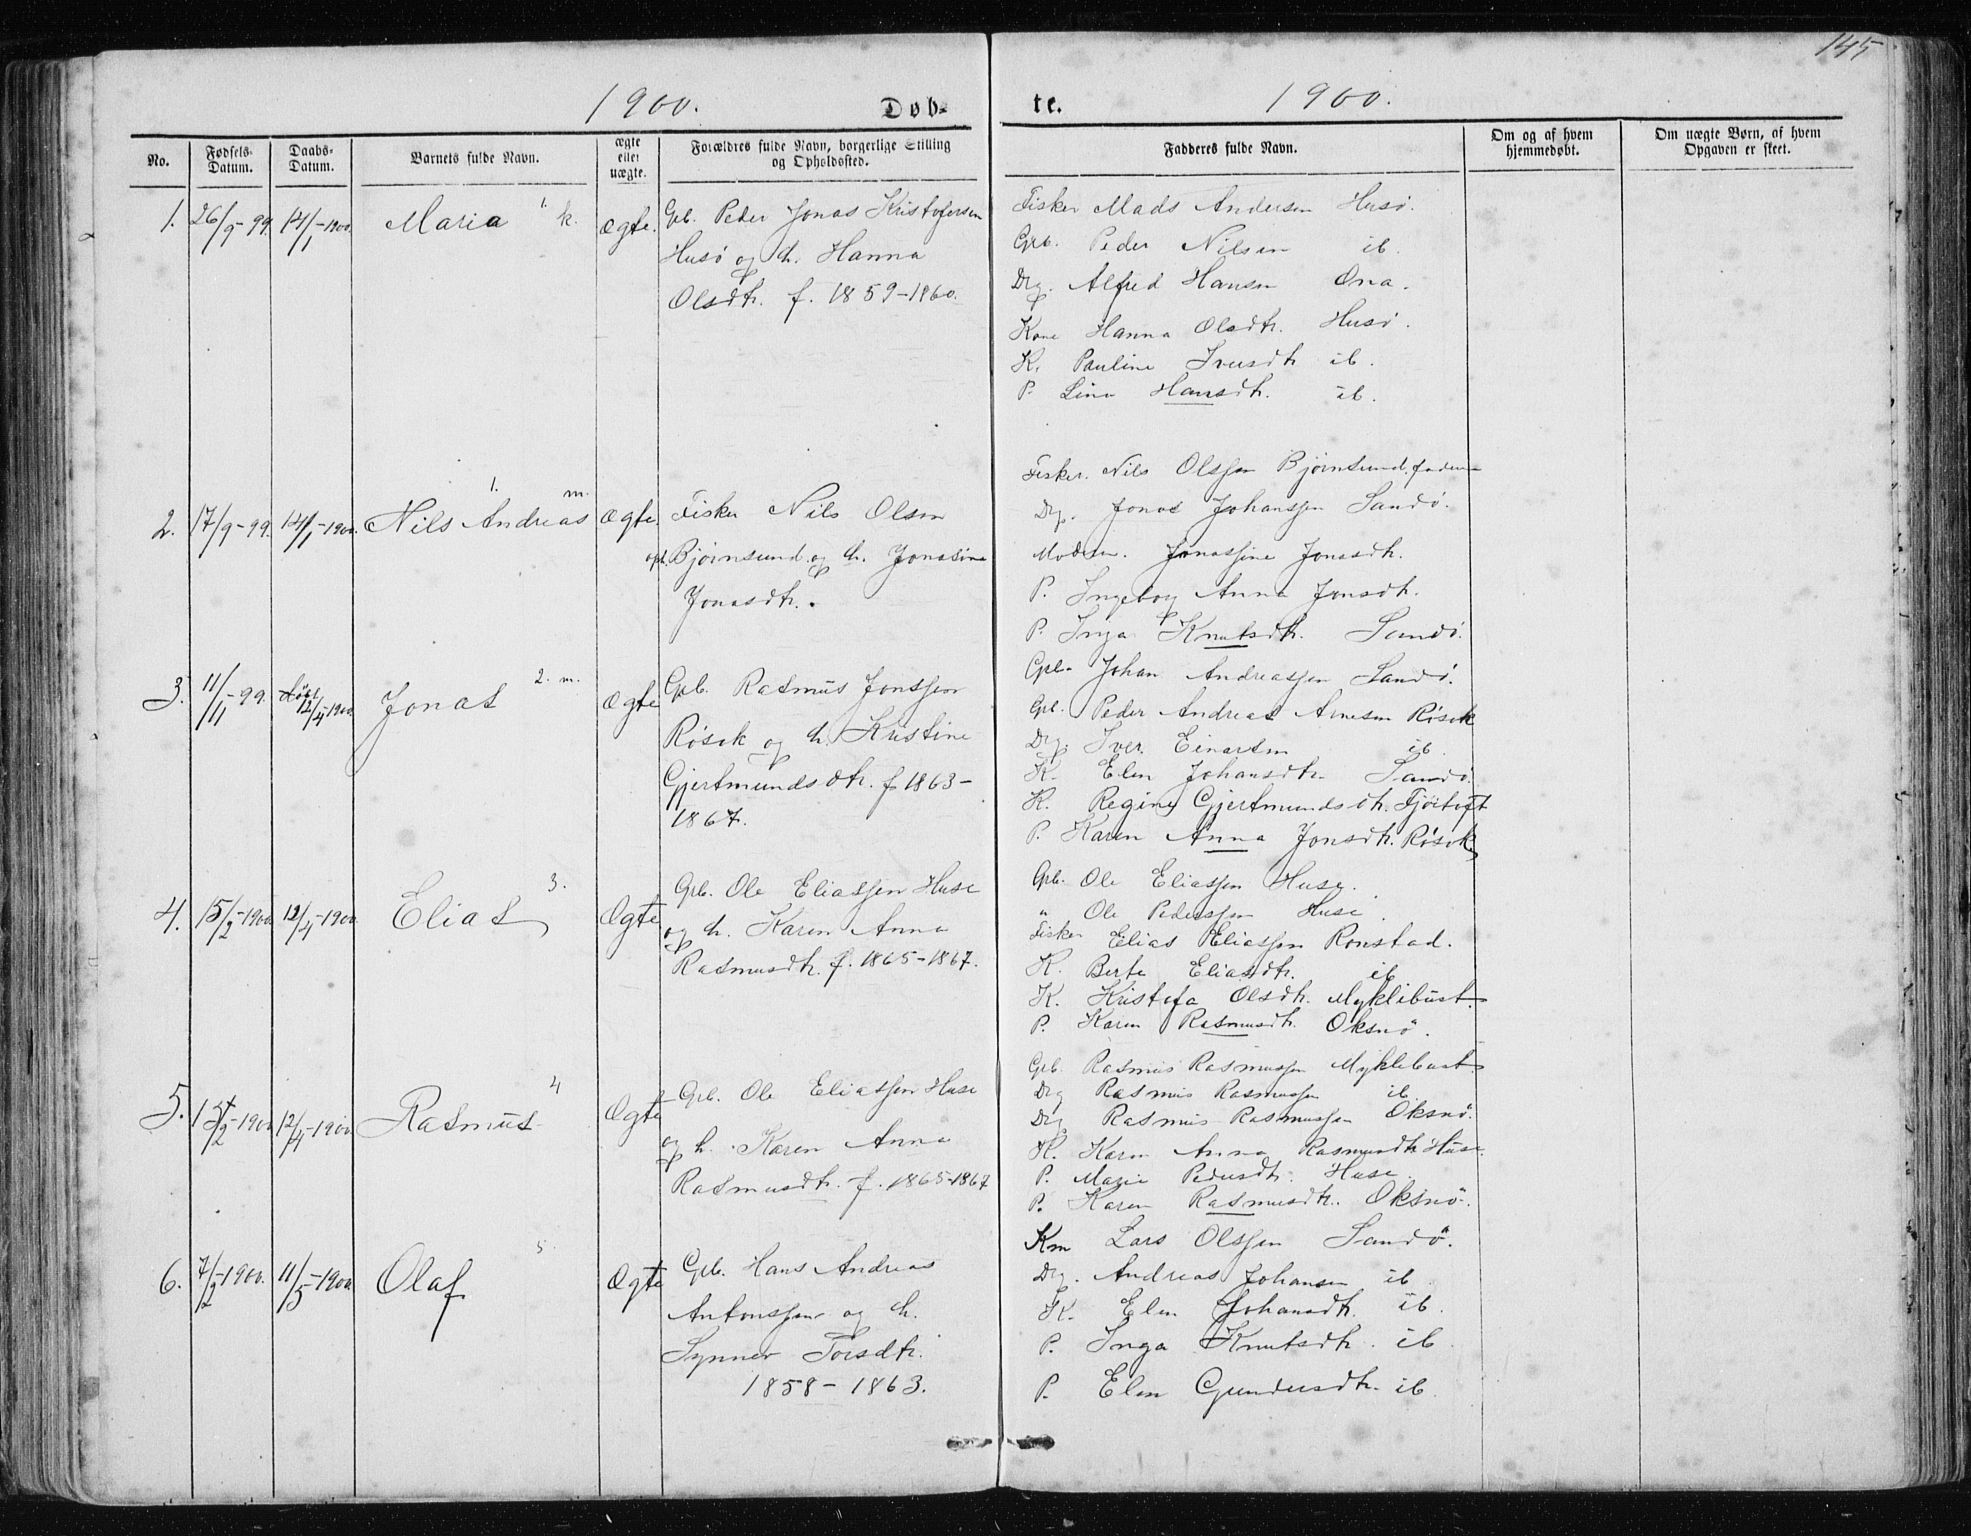 145
1900. Døb- te. 1900.
No. Fødsels-Datum. Daabs-Datum. Barnets fulde Navn. ægte eller uægte. Forældres fulde Navn, borgerlige Stilling og Opholdssted. Fadderes fulde Navn. Om og af hvem hjemmedøbt. Om uægte Børn, af hvem Opgaven er skeet.
1. 26/9-99. 14/1-1900. Maria 1. k. Ægte. Gpb. Peder Jonas Kristofersen
Husø og h. Hanna
Olsdtr. f. 1859-1860.
Fisker Mads Andersen Husø.
Gpb. Peder Nilsen ib.
Drg. Alfred Hansen Ona.
Kone Hanna Olsdtr. Husø.
K. Pauline Iversdtr ib.
P. Lina Hansdtr. ib.
2. 17/9-99. 14/1-1900. Nils Andreas 1. m. Ægte. Fisker Nils Olsen
opl. Bjørnsund og h. Jonasine
Jonasdtr.
Fisker Nils Olssen Bjørnsund, faderen
Drg. Jonas Johanssen Sandø.
Moderen. Jonassine Jonasdtr.
P. Ingeborg Anna Jonsdtr.
P. Inga Knutsdtr. Sandø.
3. 11/11-99. 12/4-1900. Jonas 2. m. Ægte Gpb. Rasmus Jonssen
Røsok og h. Kristine
Gjertmundsdtr. f 1863-
1867.
Gpb. Johan Andreassen Sandø.
Gpb. Peder Andreas Arnesen Røsok
Drg. Iver Einarsen ib.
K. Elen Johansdtr. Sandø.
K. Regine Gjertmundsdtr. Fjørtoft
P. Karen Anna Jonsdtr. Røsok
4. 15/2-1900 12/4-1900 Elias 3. Ægte Gpb. Ole Eliassen Huse
og h. Karen Anna
Rasmusdtr. f. 1865-1867.
Gpb. Ole Eliassen Huse.
" Ole Pederssen Huse.
Fisker Elias Eliassen Ronstad.
K. Berte Eliasdtr. ib
K. Kristofa Olsdtr. Myklibust.
P. Karen Rasmusdtr. Oksnø.
5. 15/2-1900 12/4-1900 Rasmus 4 Ægte Gpb. Ole Eliassen Huse
og h. Karen Anna
Rasmusdtr. f. 1865-1867
Gpb. Rasmus Rasmussen Myklebust.
Drg Rasmus Rasmussen ib.
Drg Rasmus Rasmussen Oksnø.
K. Karen Anna Rasmusdtr Huse
P. Marie Pedersdtr. Huse
P. Karen Rasmusdtr. Oksnø.
6. 7/2-1900. 11/5-1900 Olaf 5. Ægte Gpb. Hans Andreas
Antonssen og h.
Synnev Torsdtr.
1858-1863.
Km Lars Olssen Sandø.
Drg. Andreas Johansen ib
K. Elen Johansdtr. ib.
P. Inga Knutsdtr. ib
P. Elen Gundersdtr. ib.